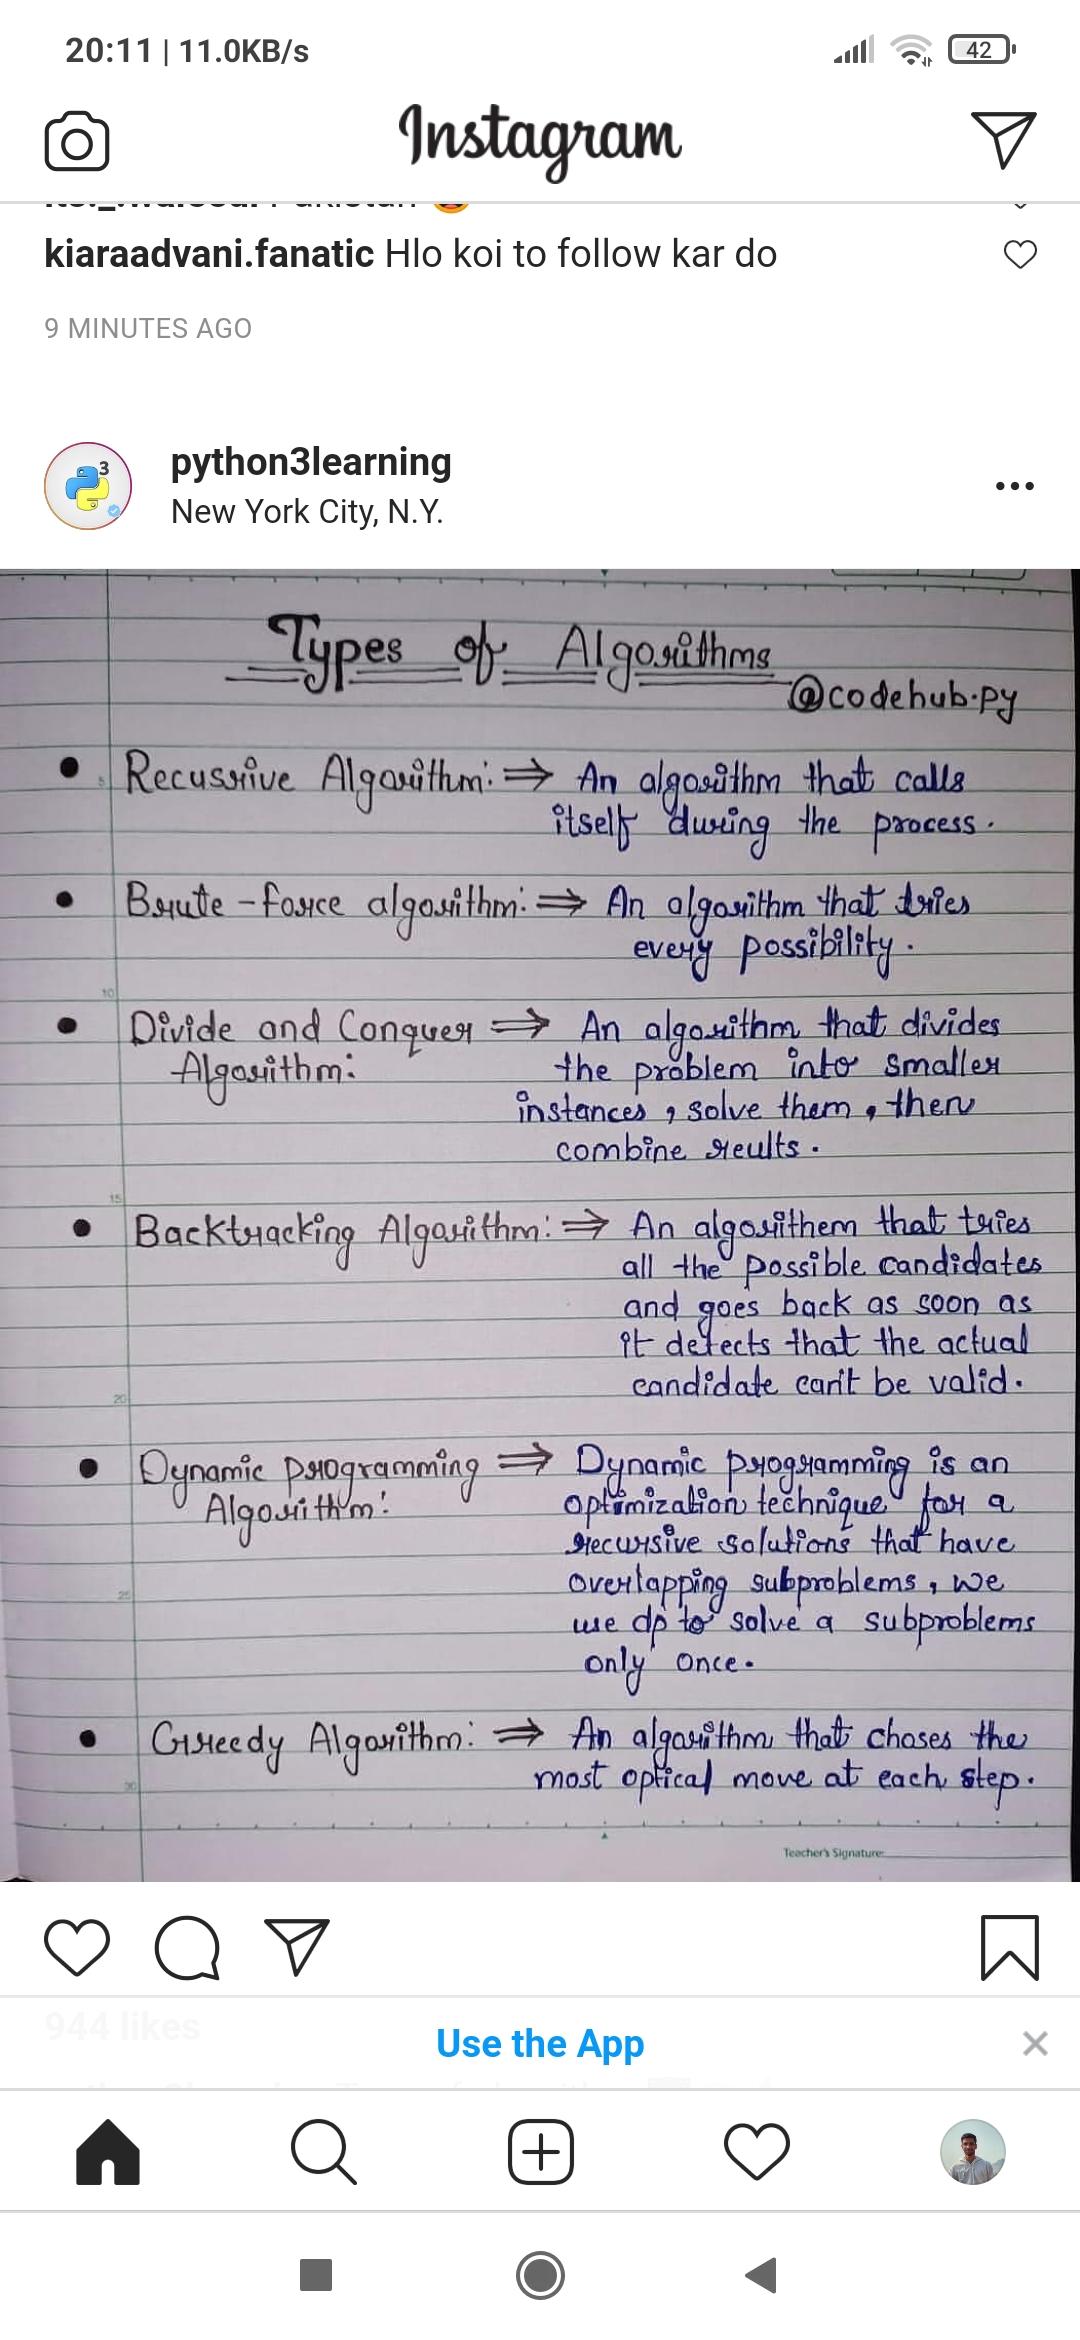 20:11 | 11.0KB/s
42
Instagram
kiaraadvani.fanatic Hlo koi to follow kar do
9 MINUTES AGO
3
python3learning
New York City, N.Y.
Types of Algorithms
@codehub.py
Recussive Algorithm: ⇒ An algorithm that calls
itself during the process.
Brute-force algorithm: ⇒ An algorithm that tries
every possibility.
10
Divide and Conquer ⇒ An algorithm that divides
Algorithm: the problem into smaller
instances, solve them, then
combine reults.
15
Backtracking Algorithm: ⇒ An algorithem that tries
all the possible candidates
and goes back as soon as
it detects that the actual
candidate can't be valid.
20
Dynamic programming ⇒ Dynamic programming is an
Algorithm: optimization technique for a
recursive solutions that have
25
overlapping subproblems, we
use dp to solve a subproblems
only once.
Greedy Algorithm: ⇒ An algorithm that choses the
30
most optical move at each step.
Teacher's Signature
944 likes
Use the App